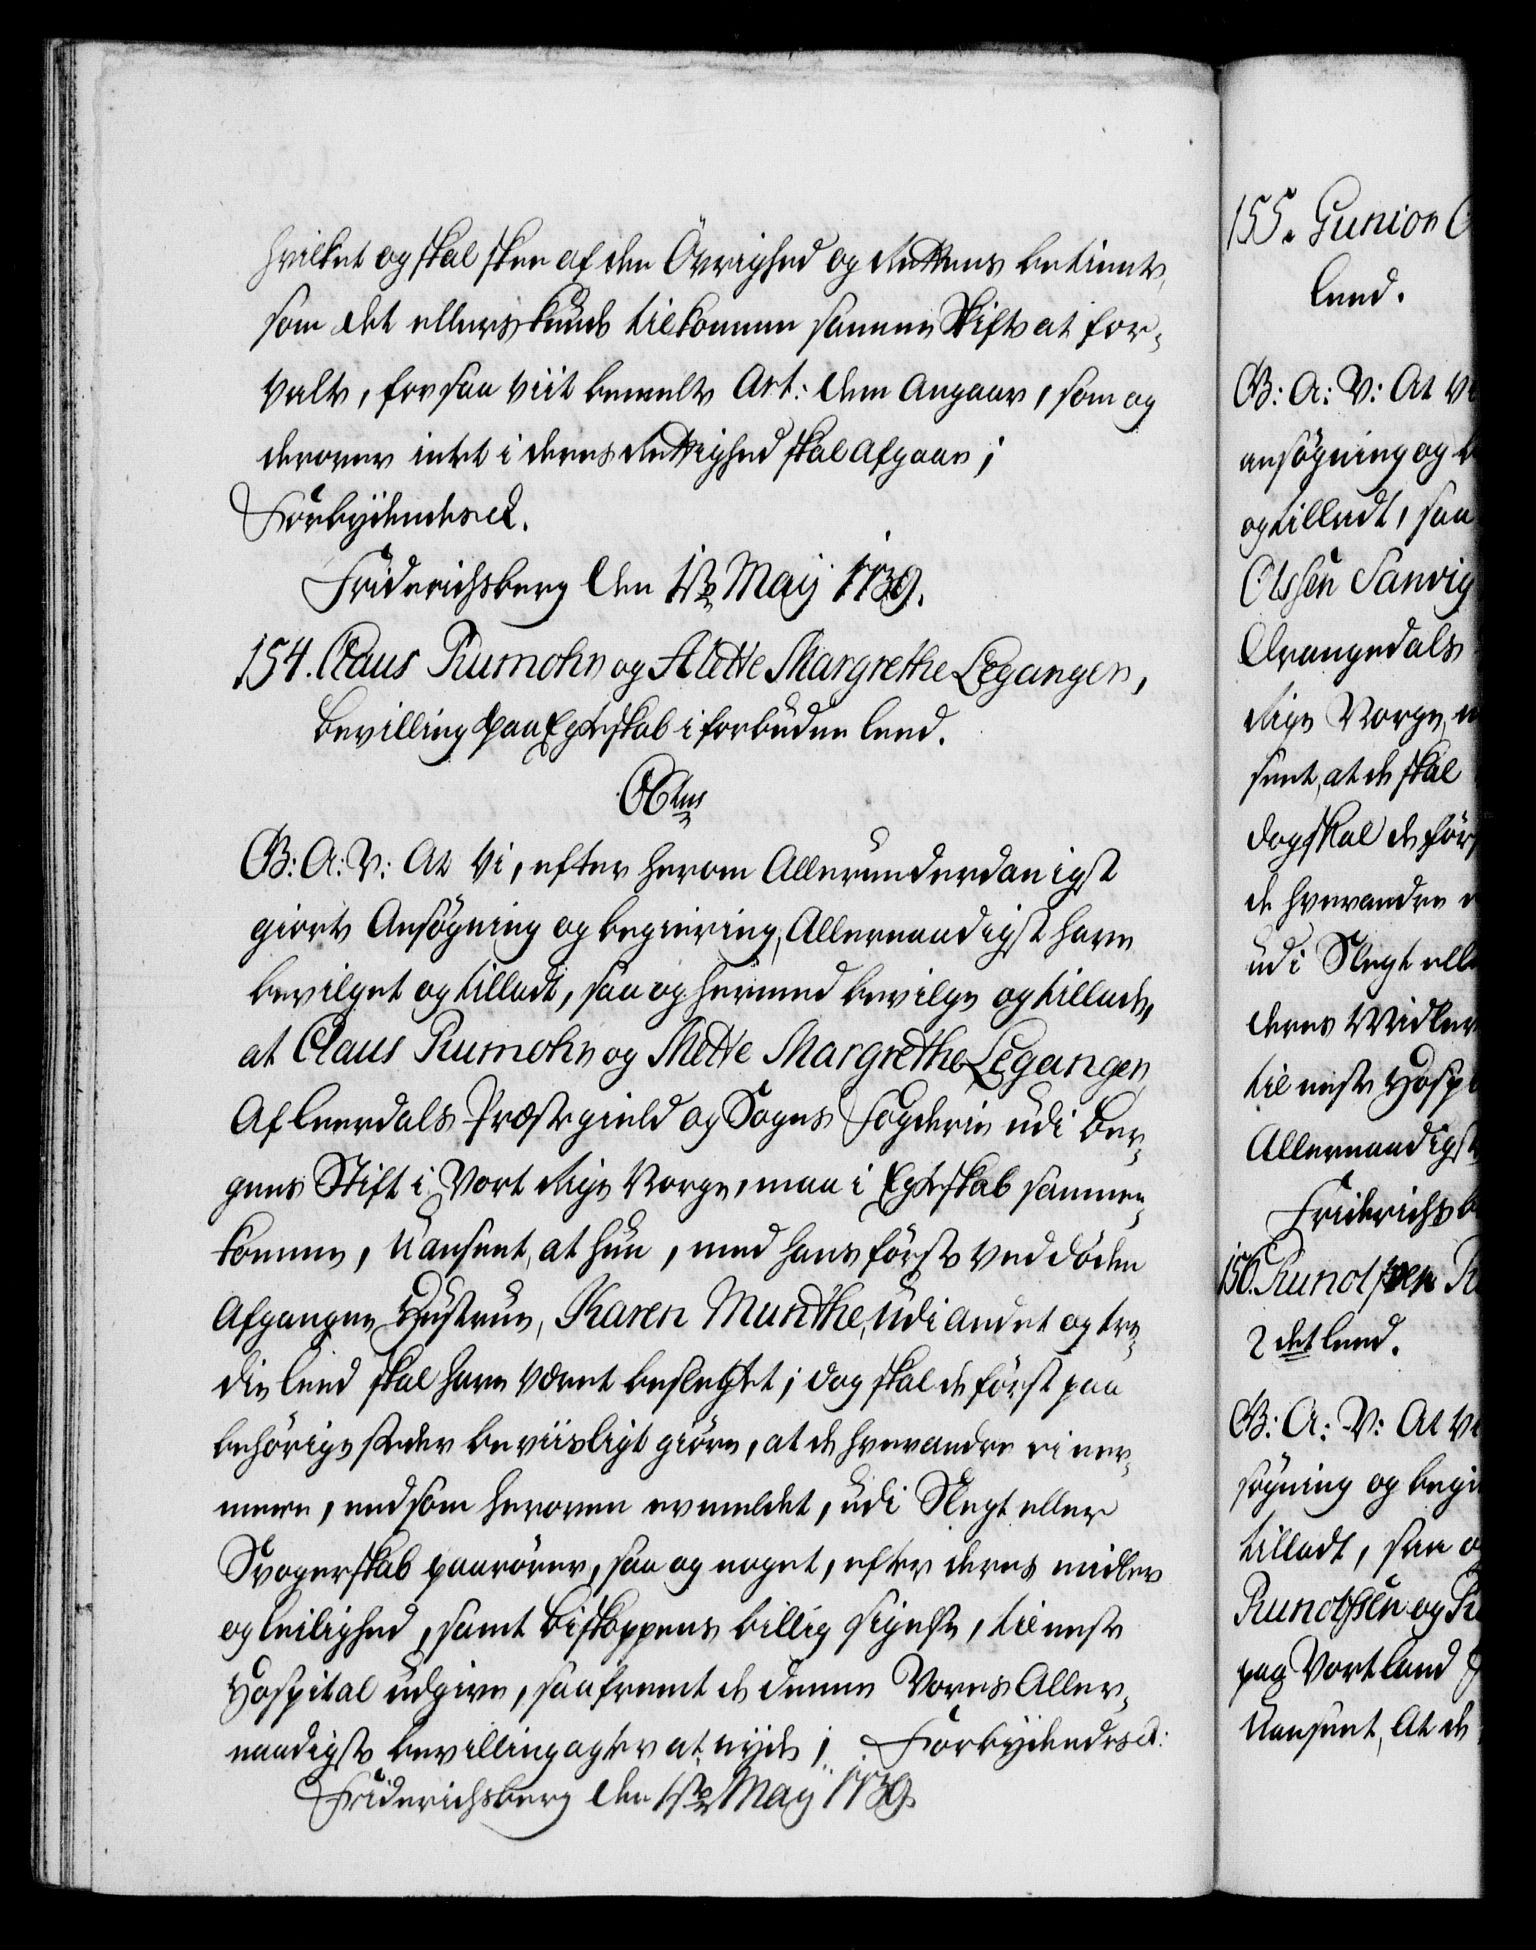 hvilket og skal skee af den Övrighed og Rettens betiente,
som det ellers kunde tilkomme samme Skifte at for-
valte, forsaa viit bemelte Art: dem angaar, som og
derover intet i deres Rettighed skal afgaae;
Forbydendes &c.
Friderichsberg den 1ste Maij 1739.
154. Claus Rumohr og Mette Margrethe Legangen,
bevilling paa Egteskab i forbuden Leed.
C 6tus
G: A: V: At Vi, efter herom Allerunderdanigst
giorte Ansögning og begiering, Allernaadigst have
bevilget og tilladt, saa og hermed bevilge og tillade,
at Claus Rumohr og Mette Margrethe Legangen,
Af Leerdals Præstegield og Sogns Fogderie udi Ber-
gens Stift i Vort Rige Norge, maa i Egteskab sammen-
komme, Uanseet, at hun, med hans förste ved döden
Afgangne Hustrue, Karen Munthe, udi andet og tre-
die Leed skal have været beslegtet; dog skal de först paa
behörige steder beviisligt giöre, at de hverandre ei ner-
mere, end som heroven ermeldet, udi Slegt eller
Svogerskab paarörer, saa og noget, efter deres midler
og leilighed, samt Biskoppens billig sigelse, til neste
Hospital udgive, saafremt de denne Vores Aller-
naadigste bevilling agter at nyde; Forbydendes &c:
Friderichsberg den 1ste Maij 1739.
155. Gunior
Leed.
G: A: V: At V
ansögning og
og tilladt, saa
Olssen Sanvig
Drangedals
Rige Norge,
seet, at de skal
dog skal de förs
de hverandre
udi Slegt elle
deres Midler
til neste Hospi
Allernaadigst
Friderichsb
156. Runolf
2det Leed.
G: A: V: At V
sögning og begi
tilladt, saa o
Runolfsen og
paa Vort Land
Uanseet, At de